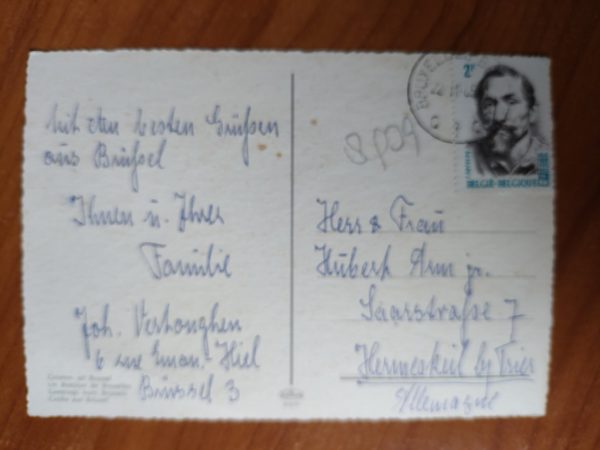 Mit den besten Grüßen
aus Brüssel
Ihnen u. Ihrer
Familie
Joh. Vertonghen
6 rue Eman. Hiel
Brüssel 3
BRUXELLES
2F
BELGIE-BELGIQUE
Herr & Frau
Hubert Arm jr.
Saarstraße 7
Hermeskeil by Trier
Allemagne